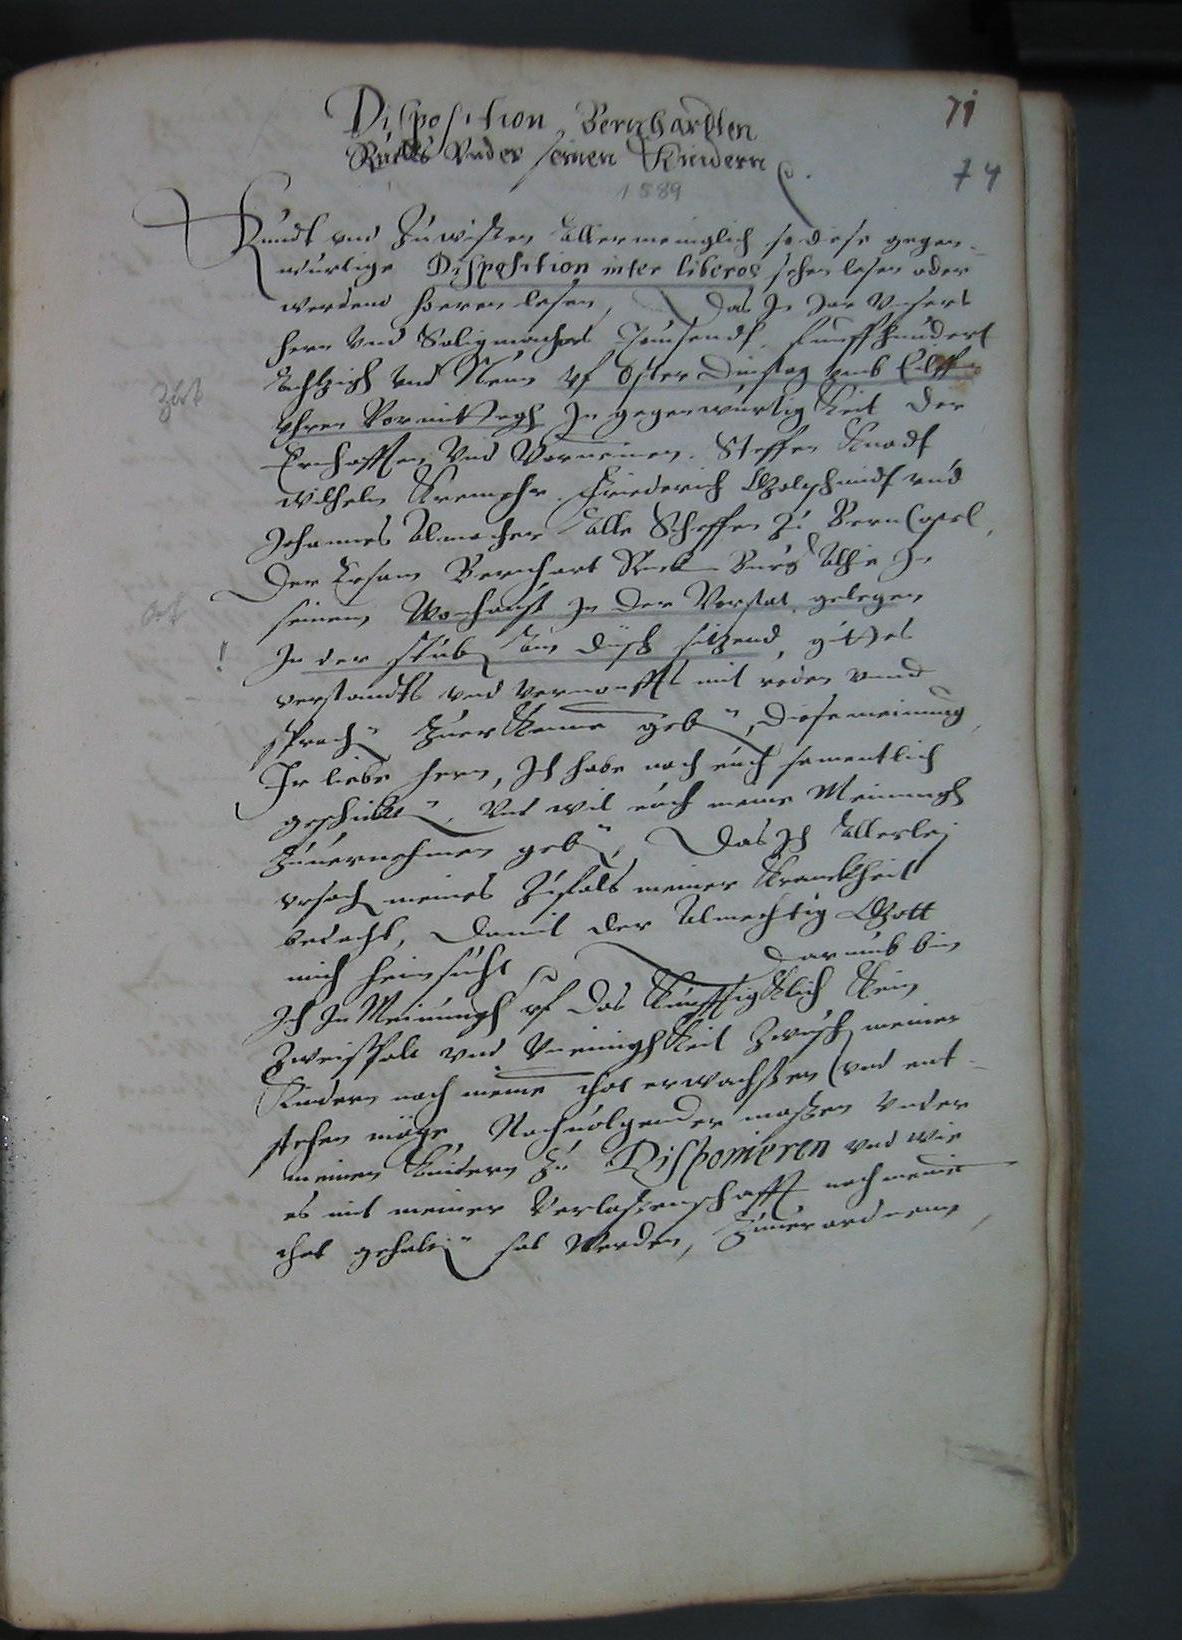 71
Disposition Bernhardten
Ruckes Vnder seinen Kindern
74
1589
Kundt vnd Zuwissen Allermeniglich so diese gegen-
wurtige Disposition inter liberos sehen lesen oder
werdend hoeren lesen, Das Jn Jar Vnsers
hern Vnd Seligmachers Thausendt funffhundert
Achtzigh Vnd Neun vf Oster Dinstag vmb Eilff
Zeit
Vhren Vormittagh Jn gegenwurtig Keit der
Ernhafften Vnd Vornemen Steffen Knodt
Wilhelm Friederich Goltschmidt vnd
Johannes Alle Scheffen Zu Bern Castel
Der Ersam Bernhart Ruck Jn
seinem Wonhauß Jn der Vorstat gelegen
Ort
! Jn der stuben Am disch sitzend, guttes
verstandts vnd vernunfft mit reden vnnd
sprachen Zuerkenne geben, diese meinung
Jr liebe hern, Jch habe nach euch samentlich
geschickt, Vnd wil euch meine Meinungh
Zuuernehmen geben, Das Jch Allerley
vrsach meines Zufals meiner Kranckheit
bedacht, Damit der Almechtig Gott
mich heimsucht Darumb bin
Jch Jn Meinungh vf das Kunfftigklich Kein
Zweispalt vnd Vneinighkeit Zwischen meinen
Kindern nach meinem thot erwachssen vnd ent-
stehen möge, Nachuolgender massen Vnder
meinen Kindern Zu Disponieren vnd wie
es mit meiner Verlassenschafft nach meinem
thot gehalten sol Werden, Zuuerordnenn,